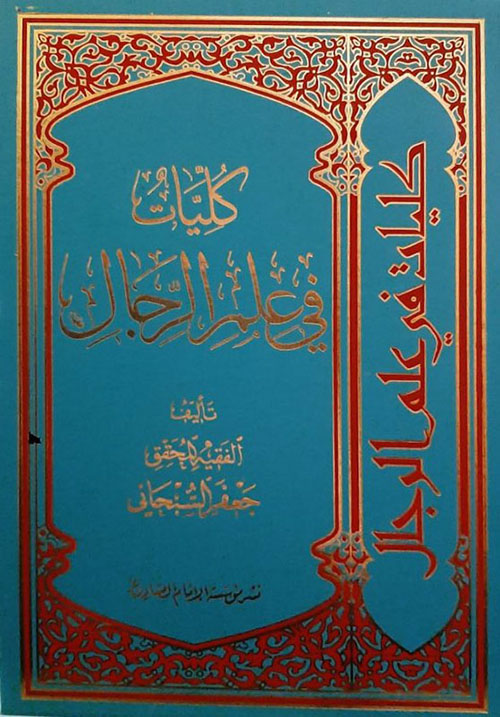 كُلِّيَّاتٌ
فِي عِلْمِ الرِّجَالِ
تَألِيفُ
الفَقِيهِ المُحَقِّقِ
جَعْفَر السُّبْحَانِي
نشر مؤسسة الإمام الصادق (ع)
كليات في علم الرجال